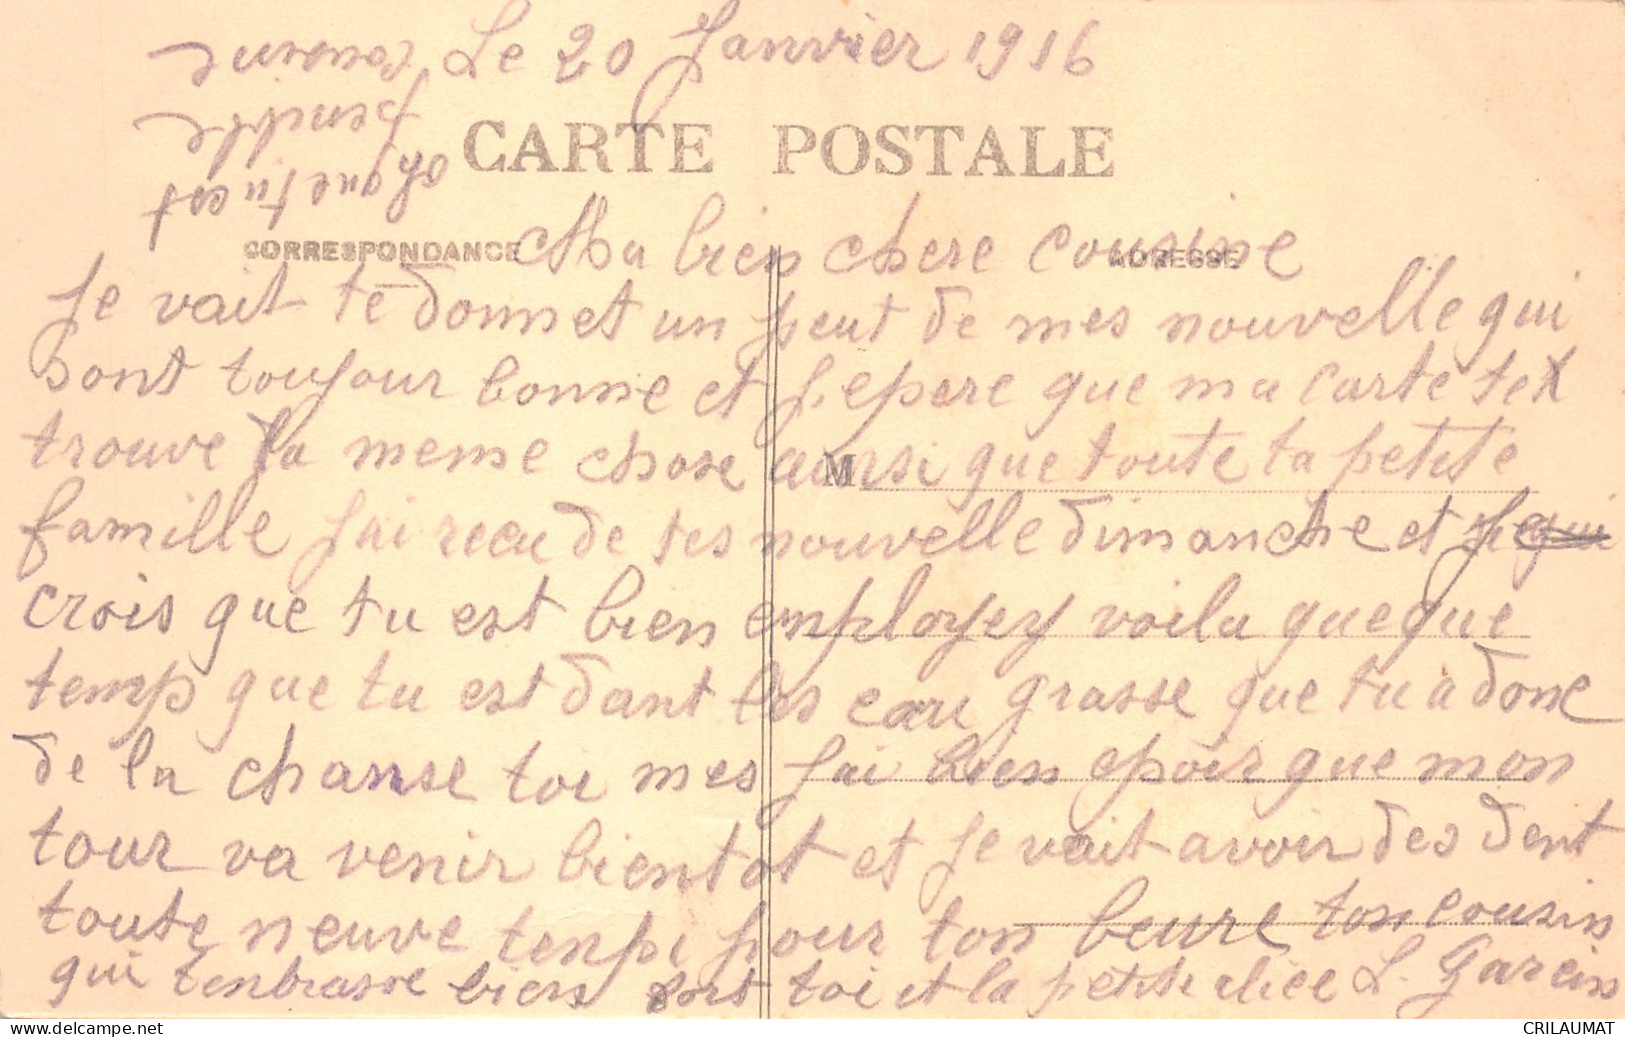 Le 20 Janvier 1916
CARTE POSTALE
CORRESPONDANCE
ADRESSE
Ma bien chere cousine
Je vait te donnet un peut de mes nouvelle qui
sont toujour bonne et j.epere que ma carte te
trouve la meme chose ainsi que toute ta petite
M
famille J'ai recu de tes nouvelle dimanche et je
crois que tu est bien employey voila queque
temp que tu est dant les eau grasse que tu a donc
de la chanse toi mes J'ai bien epoir que mon
tour va venir bientot et Je vait avoir des dent
toute neuve tenpi pour ton beure ton cousin
qui t'enbrasse bien fort toi et la petite alice L. Garcin
oh que tu est
CRILAUMAT